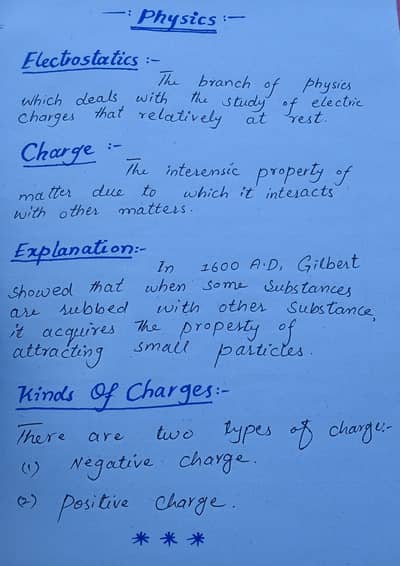 —: Physics :—
Electrostatics :-
The branch of physics
which deals with the study of electric
charges that relatively at rest.
Charge :-
The intersensic property of
matter due to which it interacts
with other matters.
Explanation:-
In 1600 A.D, Gilbert
showed that when some substances
are rubbed with other substance,
it acquires the property of
attracting small particles.
Kinds Of Charges:-
There are two types of charge:-
(1) Negative charge.
(2) Positive charge.
* * *